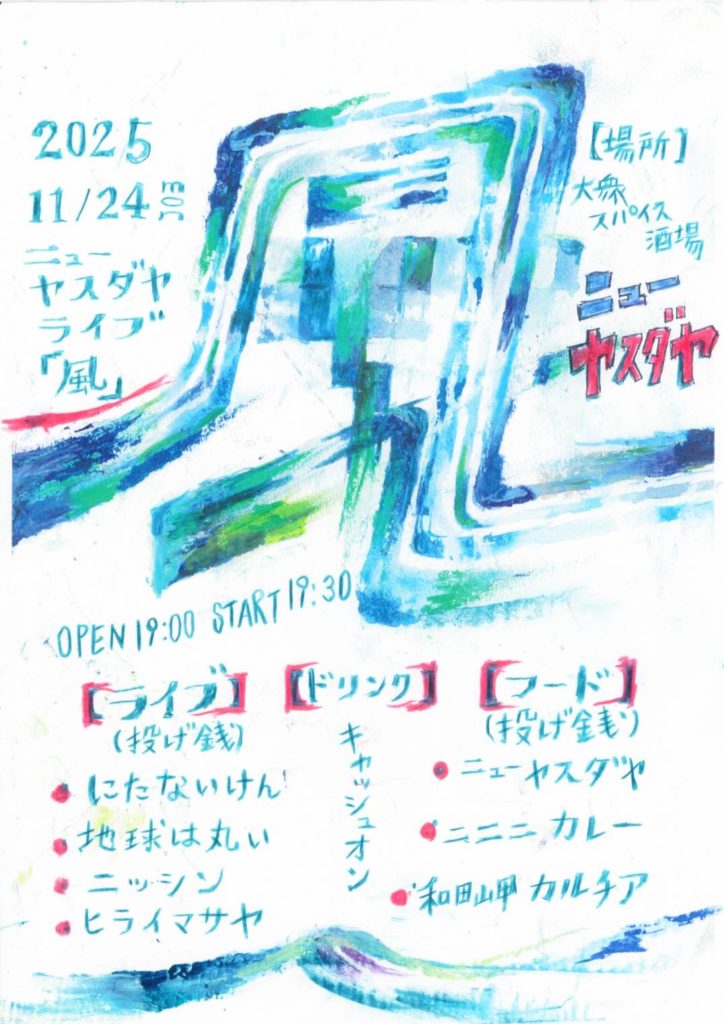 2025
11/24
ニュー
ヤスダヤ
ライブ
「風」
【場所】
大衆
スパイス
酒場
ニュー
ヤスダヤ
OPEN 19:00 START 19:30
【ライブ】
(投げ銭)
にたないけん
地球は丸い
ニッシン
ヒライマサヤ
【ドリンク】
キャッシュオン
【フード】
(投げ銭)
ニューヤスダヤ
ニニニカレー
和田山甲カルチア